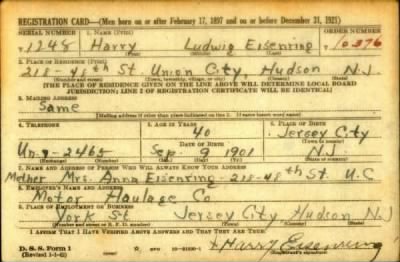 REGISTRATION CARD—(Men born on or after February 17, 1897 and on or before December 31, 1921)
SERIAL NUMBER 1. NAME (Print) ORDER NUMBER
1248 Harry Ludwig Eisenring 10376
(First) (Middle) (Last)
2. PLACE OF RESIDENCE (Print)
218-48th St. Union City, Hudson N.J.
(Number and street) (Town, township, village, or city) (County) (State)
[THE PLACE OF RESIDENCE GIVEN ON THE LINE ABOVE WILL DETERMINE LOCAL BOARD
JURISDICTION; LINE 2 OF REGISTRATION CERTIFICATE WILL BE IDENTICAL]
3. MAILING ADDRESS
Same
[Mailing address if other than place indicated on line 2. If same insert word same]
4. TELEPHONE 5. AGE IN YEARS 6. PLACE OF BIRTH
40 Jersey City
DATE OF BIRTH (Town or county)
Un-7-2465 Sep 9 1901 N.J.
(Exchange) (Number) (Mo.) (Day) (Yr.) (State or country)
7. NAME AND ADDRESS OF PERSON WHO WILL ALWAYS KNOW YOUR ADDRESS
Mother Mrs. Anna Eisenring-218-48th St. U.C
8. EMPLOYER'S NAME AND ADDRESS
Motor Haulage Co
9. PLACE OF EMPLOYMENT OR BUSINESS
York St Jersey City Hudson N.J
(Number and street or R. F. D. number) (Town) (County) (State)
I AFFIRM THAT I HAVE VERIFIED ABOVE ANSWERS AND THAT THEY ARE TRUE.
D. S. S. Form 1 Harry Eisenring
(Revised 1-1-42)